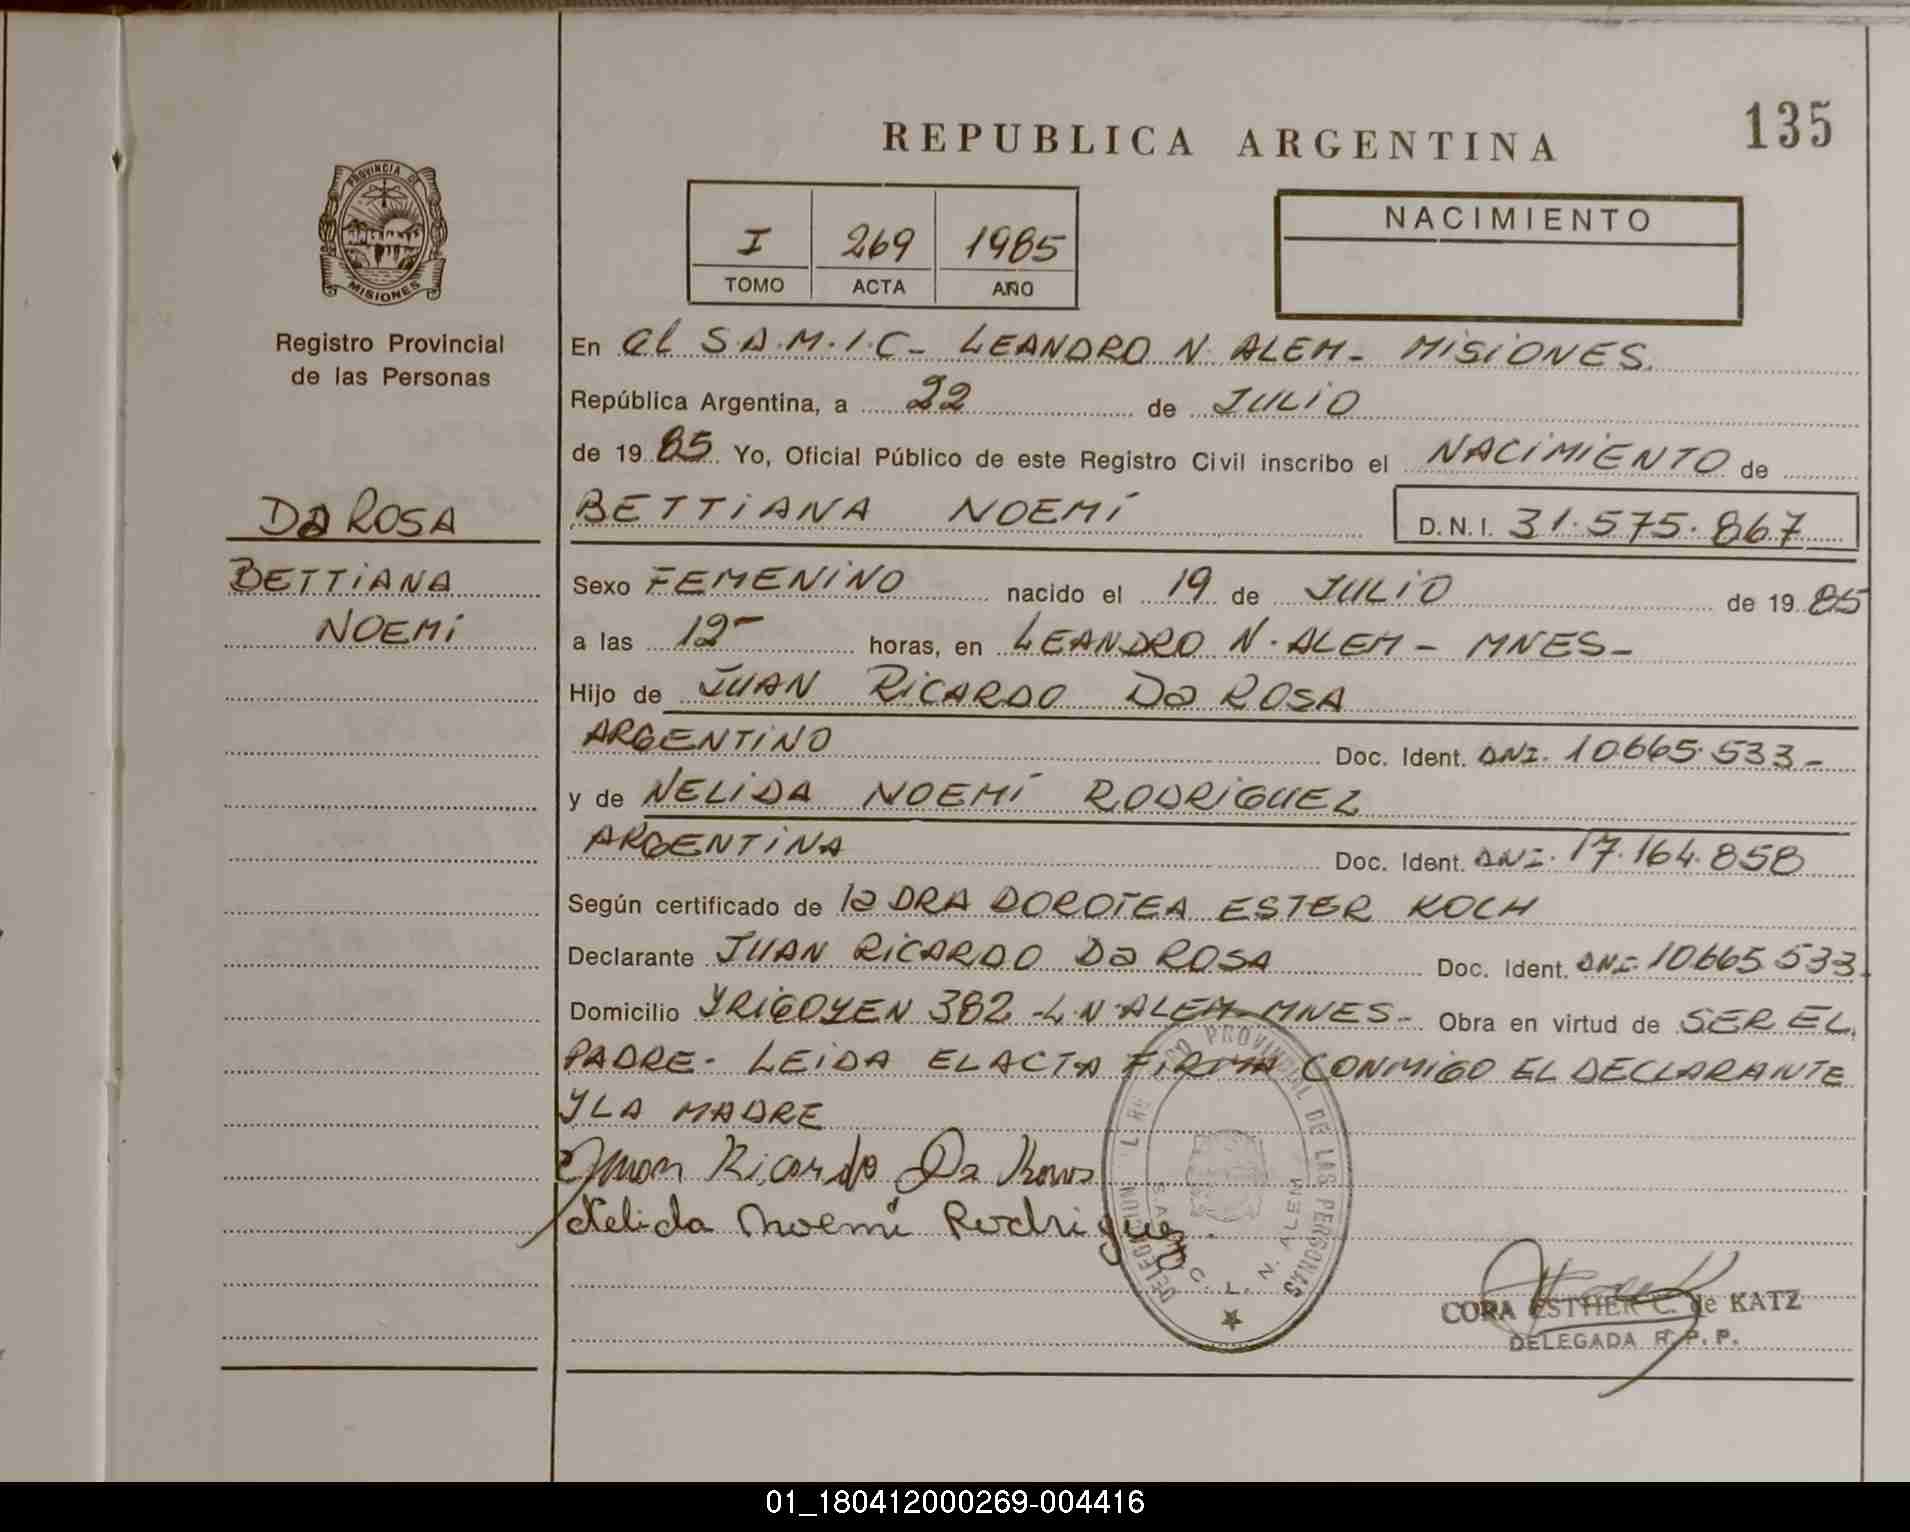 135
REPUBLICA ARGENTINA
PROVINCIA DE
MISIONES
Registro Provincial
de las Personas
I 269 1985
TOMO ACTA AÑO
NACIMIENTO
En el S.A.M.I.C- LEANDRO N. ALEM- MISIONES.
República Argentina, a 22 de JULIO
de 1985 Yo, Oficial Público de este Registro Civil inscribo el NACIMIENTO de
Da ROSA
BETTIANA
NOEMI
BETTIANA NOEMÍ D.N.I. 31.575.867
Sexo FEMENINO nacido el 19 de JULIO de 1985
a las 12- horas, en LEANDRO N. ALEM - MNES-
Hijo de JUAN RICARDO Da ROSA
ARGENTINO Doc. Ident. DNI. 10.665.533-
y de NELIDA NOEMÍ RODRIGUEZ
ARGENTINA Doc. Ident. DNI. 17.164.858
Según certificado de la DRA DOROTEA ESTER KOCH
Declarante JUAN RICARDO Da ROSA Doc. Ident. DNI. 10.665.533.
Domicilio YRIGOYEN 382 -L.N.ALEM-MNES- Obra en virtud de SER EL
PADRE- LEIDA EL ACTA FIRMA CONMIGO EL DECLARANTE
Y LA MADRE
Juan Ricardo Da Rosa
Nelida Noemi Rodriguez.
DELEGACION REGISTRO PROVINCIAL DE LAS PERSONAS
S.A.M.I.C. L. N. ALEM
CORA ESTHER C. de KATZ
DELEGADA R. P. P.
01_180412000269-004416